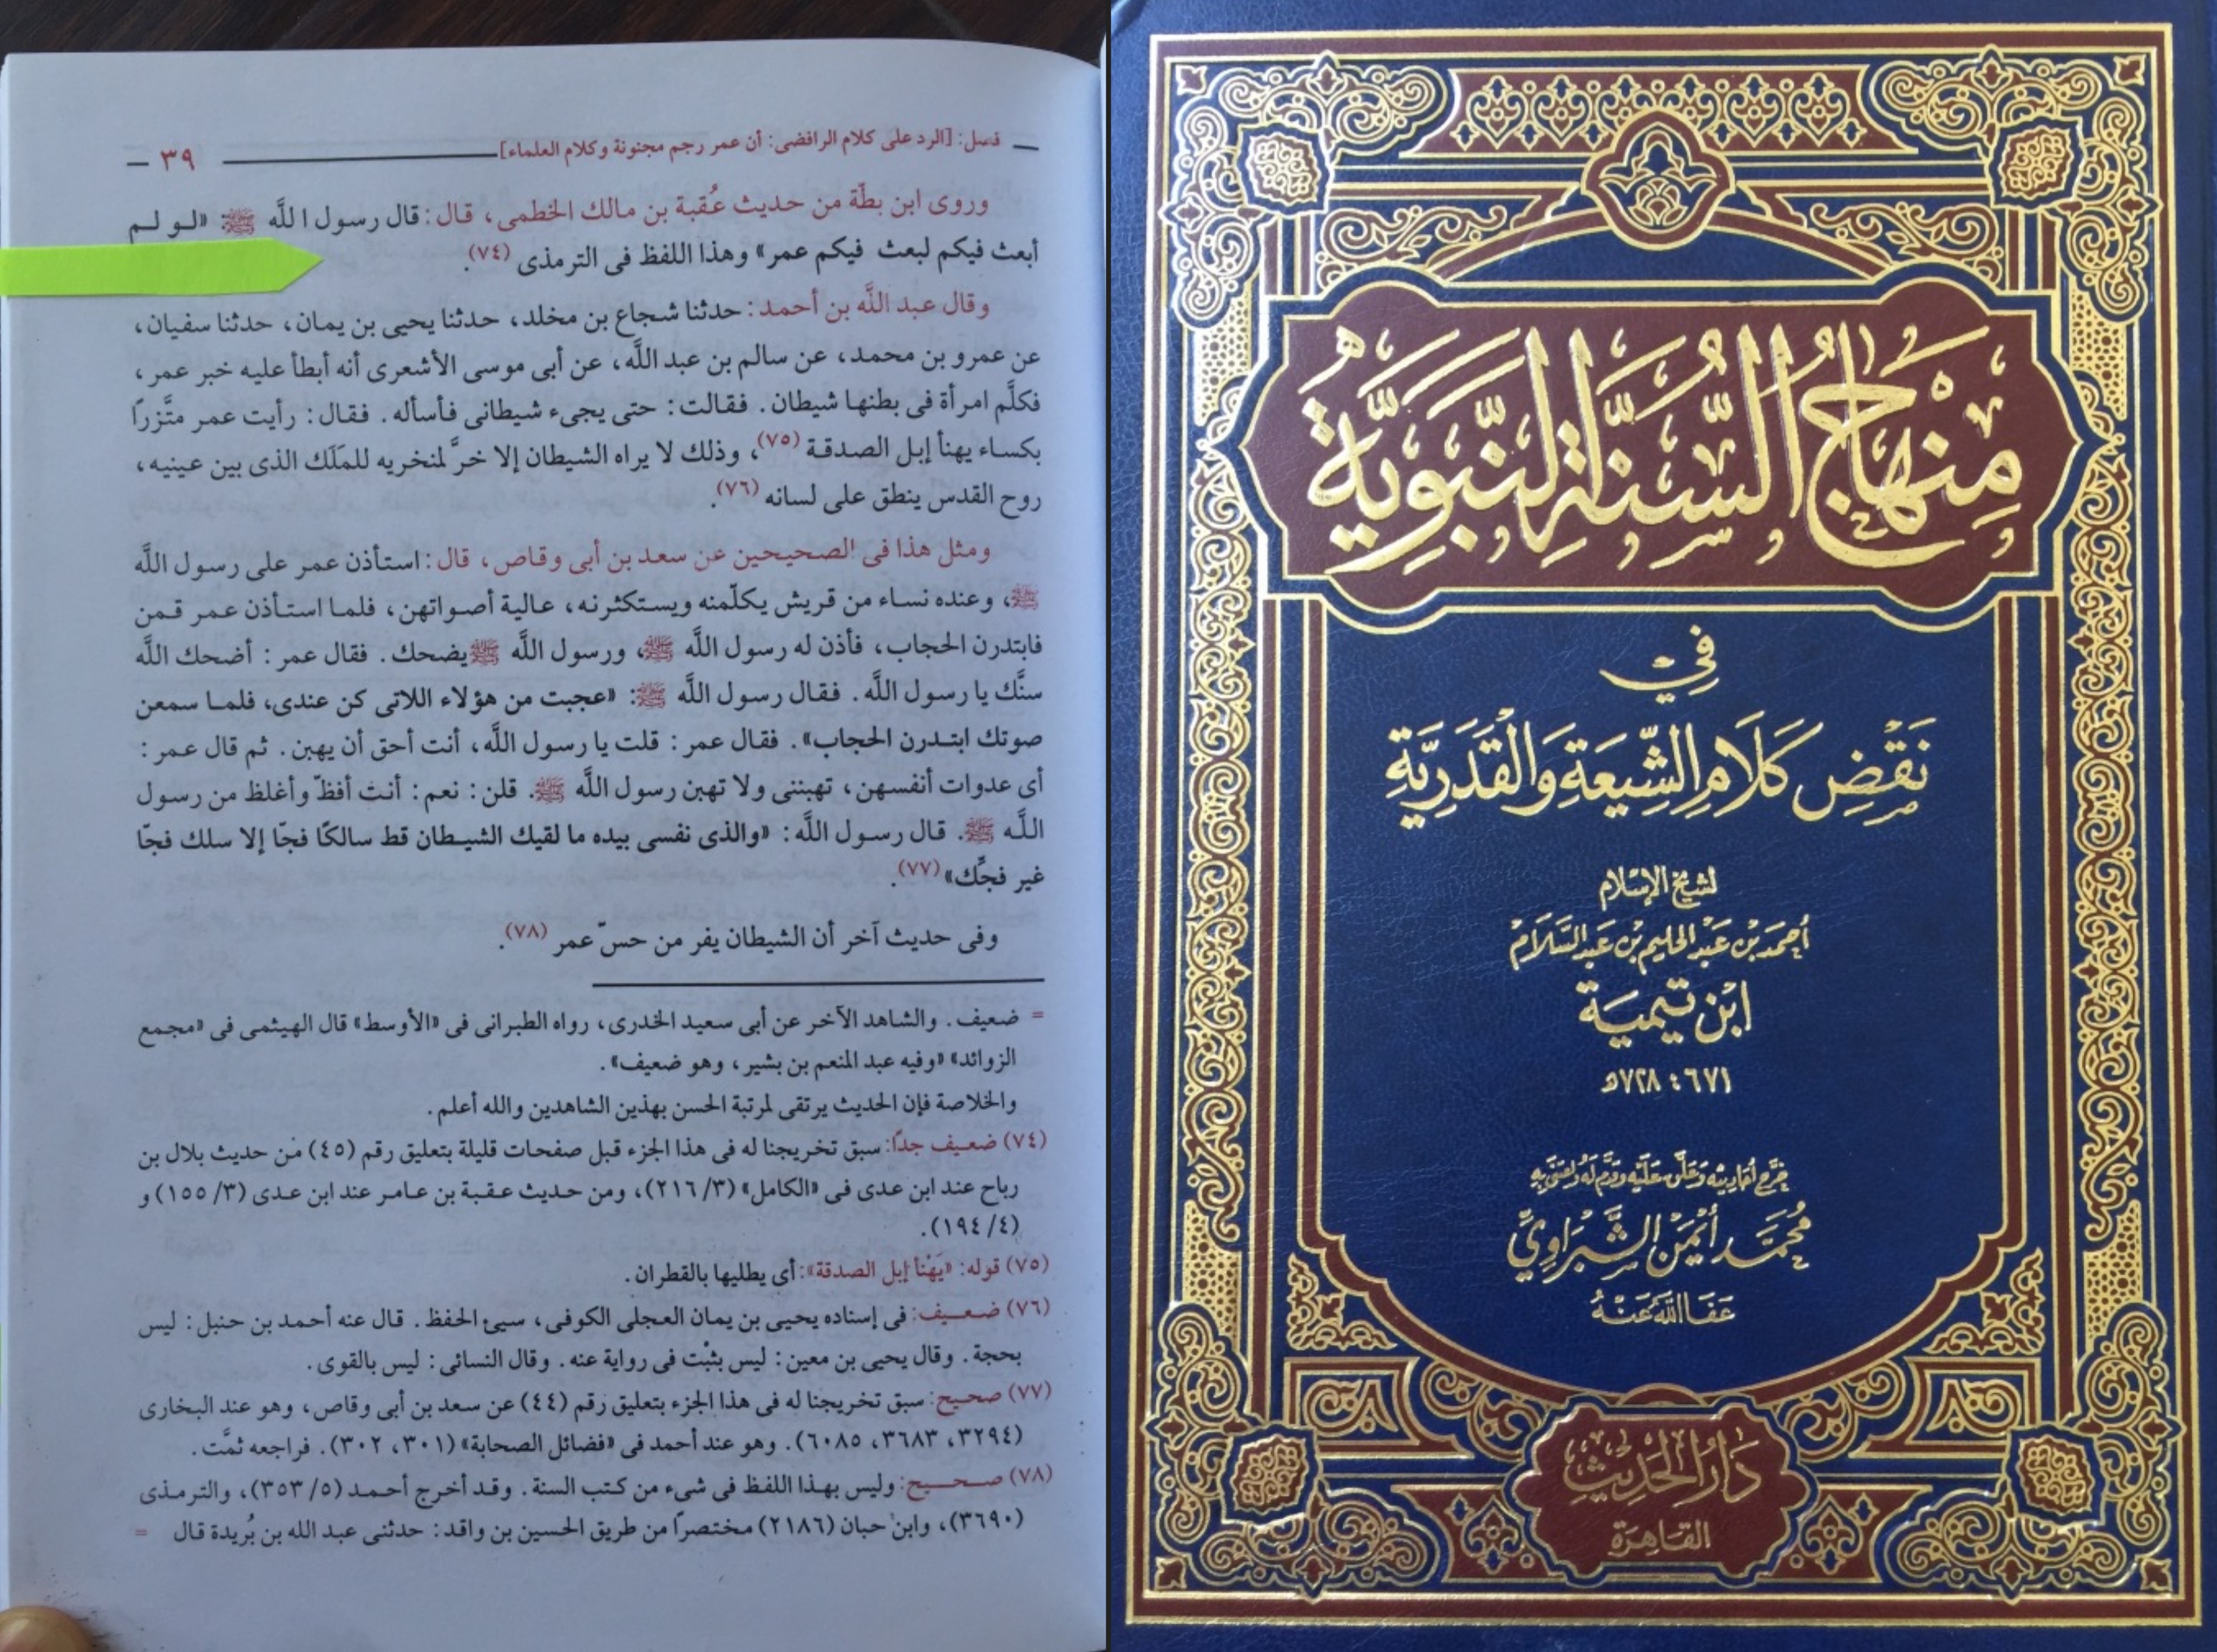 فصل: [الرد على كلام الرافضى: أن عمر رجم مجنونة وكلام العلماء] ٣٩
وروى ابن بطّة من حديث عُقبة بن مالك الخطمى، قال: قال رسول اللَّه ﷺ: «لو لم
أبعث فيكم لبعث فيكم عمر» وهذا اللفظ فى الترمذى (٧٤).
وقال عبد اللَّه بن أحمد: حدثنا شجاع بن مخلد، حدثنا يحيى بن يمان، حدثنا سفيان،
عن عمرو بن محمد، عن سالم بن عبد اللَّه، عن أبى موسى الأشعرى أنه أبطأ عليه خبر عمر،
فكلَّم امرأة فى بطنها شيطان. فقالت: حتى يجىء شيطانى فأسأله. فقال: رأيت عمر متَّزرًا
بكساء يهنأ إبل الصدقة (٧٥)، وذلك لا يراه الشيطان إلا خرَّ لمنخريه للملَك الذى بين عينيه،
روح القدس ينطق على لسانه (٧٦).
ومثل هذا فى الصحيحين عن سعد بن أبى وقاص، قال: استأذن عمر على رسول اللَّه
ﷺ، وعنده نساء من قريش يكلّمنه ويستكثرنه، عالية أصواتهن، فلما استأذن عمر قمن
فابتدرن الحجاب، فأذن له رسول اللَّه ﷺ، ورسول اللَّه ﷺ يضحك. فقال عمر: أضحك اللَّه
سنَّك يا رسول اللَّه. فقال رسول اللَّه ﷺ: «عجبت من هؤلاء اللاتى كن عندى، فلما سمعن
صوتك ابتدرن الحجاب». فقال عمر: قلت يا رسول اللَّه، أنت أحق أن يهبن. ثم قال عمر:
أى عدوات أنفسهن، تهبننى ولا تهبن رسول اللَّه ﷺ. قلن: نعم: أنت أفظّ وأغلظ من رسول
اللَّه ﷺ. قال رسول اللَّه: «والذى نفسى بيده ما لقيك الشيطان قط سالكًا فجًا إلا سلك فجًا
غير فجِّك» (٧٧).
وفى حديث آخر أن الشيطان يفر من حسّ عمر (٧٨).
= ضعيف. والشاهد الآخر عن أبى سعيد الخدرى، رواه الطبرانى فى «الأوسط» قال الهيثمى فى «مجمع
الزوائد» «وفيه عبد المنعم بن بشير، وهو ضعيف».
والخلاصة فإن الحديث يرتقى لمرتبة الحسن بهذين الشاهدين والله أعلم.
(٧٤) ضعيف جدًا: سبق تخريجنا له فى هذا الجزء قبل صفحات قليلة بتعليق رقم (٤٥) من حديث بلال بن
رباح عند ابن عدى فى «الكامل» (٣/ ٢١٦)، ومن حديث عقبة بن عامر عند ابن عدى (٣/ ١٥٥) و
(٤/ ١٩٤).
(٧٥) قوله: «يَهْنأ إبل الصدقة»: أى يطليها بالقطران.
(٧٦) ضعيف: فى إسناده يحيى بن يمان العجلى الكوفى، سيئ الحفظ. قال عنه أحمد بن حنبل: ليس
بحجة. وقال يحيى بن معين: ليس بثبْت فى رواية عنه. وقال النسائى: ليس بالقوى.
(٧٧) صحيح: سبق تخريجنا له فى هذا الجزء بتعليق رقم (٤٤) عن سعد بن أبى وقاص، وهو عند البخارى
(٣٢٩٤، ٣٦٨٣، ٦٠٨٥). وهو عند أحمد فى «فضائل الصحابة» (٣٠١، ٣٠٢). فراجعه ثمَّت.
(٧٨) صحيح: وليس بهذا اللفظ فى شىء من كتب السنة. وقد أخرج أحمد (٥/ ٣٥٣)، والترمذى
(٣٦٩٠)، وابن حبان (٢١٨٦) مختصرًا من طريق الحسين بن واقد: حدثنى عبد الله بن بُريدة قال =
مِنهَاجُ السُّنَّةِ النَّبَوِيَّةِ
فِي
نَقْضِ كَلَامِ الشِّيعَةِ وَالْقَدَرِيَّةِ
لشيخ الإسلام
أحمد بن عبد الحليم بن عبد السَّلام
ابن تيميَة
٦٧١ : ٧٢٨ هـ
خرَّج أحاديثه وعلَّق عليه وقدَّم له واعتنى به
محمَّد أيمَن الشَّبراويّ
عَفَا اللَّه عَنْهُ
دَارُ الحَدِيث
القَاهِرَة